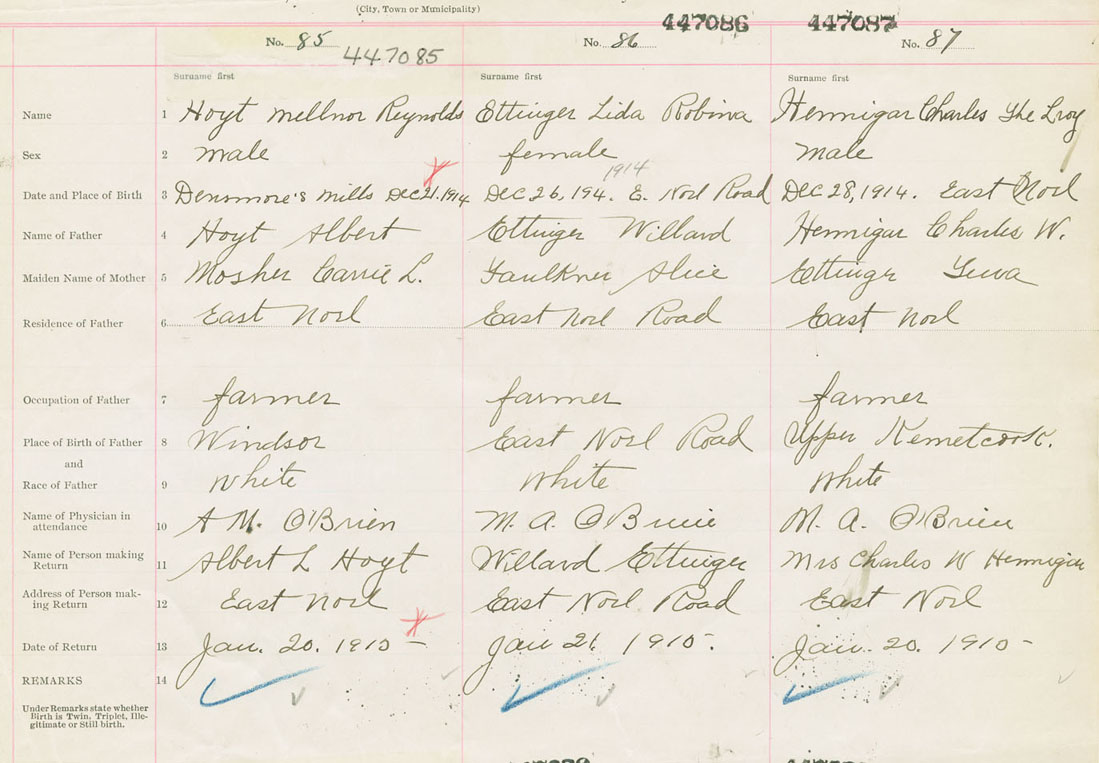 (City, Town or Municipality)
447086 447087
No. 85 No. 86 No. 87
447085
Surname first Surname first Surname first
Name 1 Hoyt Mellnor Reynolds Ettinger Lida Robina Hennigar Charles The Lroy
Sex 2 male female male
1914
Date and Place of Birth 3 Densmore's Mills Dec 21.1914 Dec 26, 194. E. Noel Road Dec 28, 1914. East Noel
Name of Father 4 Hoyt Albert Ettinger Willard Hennigar Charles W.
Maiden Name of Mother 5 Mosher Carrie L. Faulkner Alice Ettinger
Residence of Father 6 East Noel East Noel Road East Noel
Occupation of Father 7 farmer farmer farmer
Place of Birth of Father 8 Windsor East Noel Road Upper Kennetcook.
and
Race of Father 9 White White White
Name of Physician in attendance 10 A M. O'Brien M. A. O'Brien M. A. O'Brien
Name of Person making Return 11 Albert L Hoyt Willard Ettinger Mrs Charles W Hennigar
Address of Person mak-ing Return 12 East Noel East Noel Road East Noel
Date of Return 13 Jan. 20. 1915 – Jan 21 1915. Jan. 20. 1915 –
REMARKS 14
Under Remarks state whether
Birth is Twin, Triplet, Ille-
gitimate or Still birth.